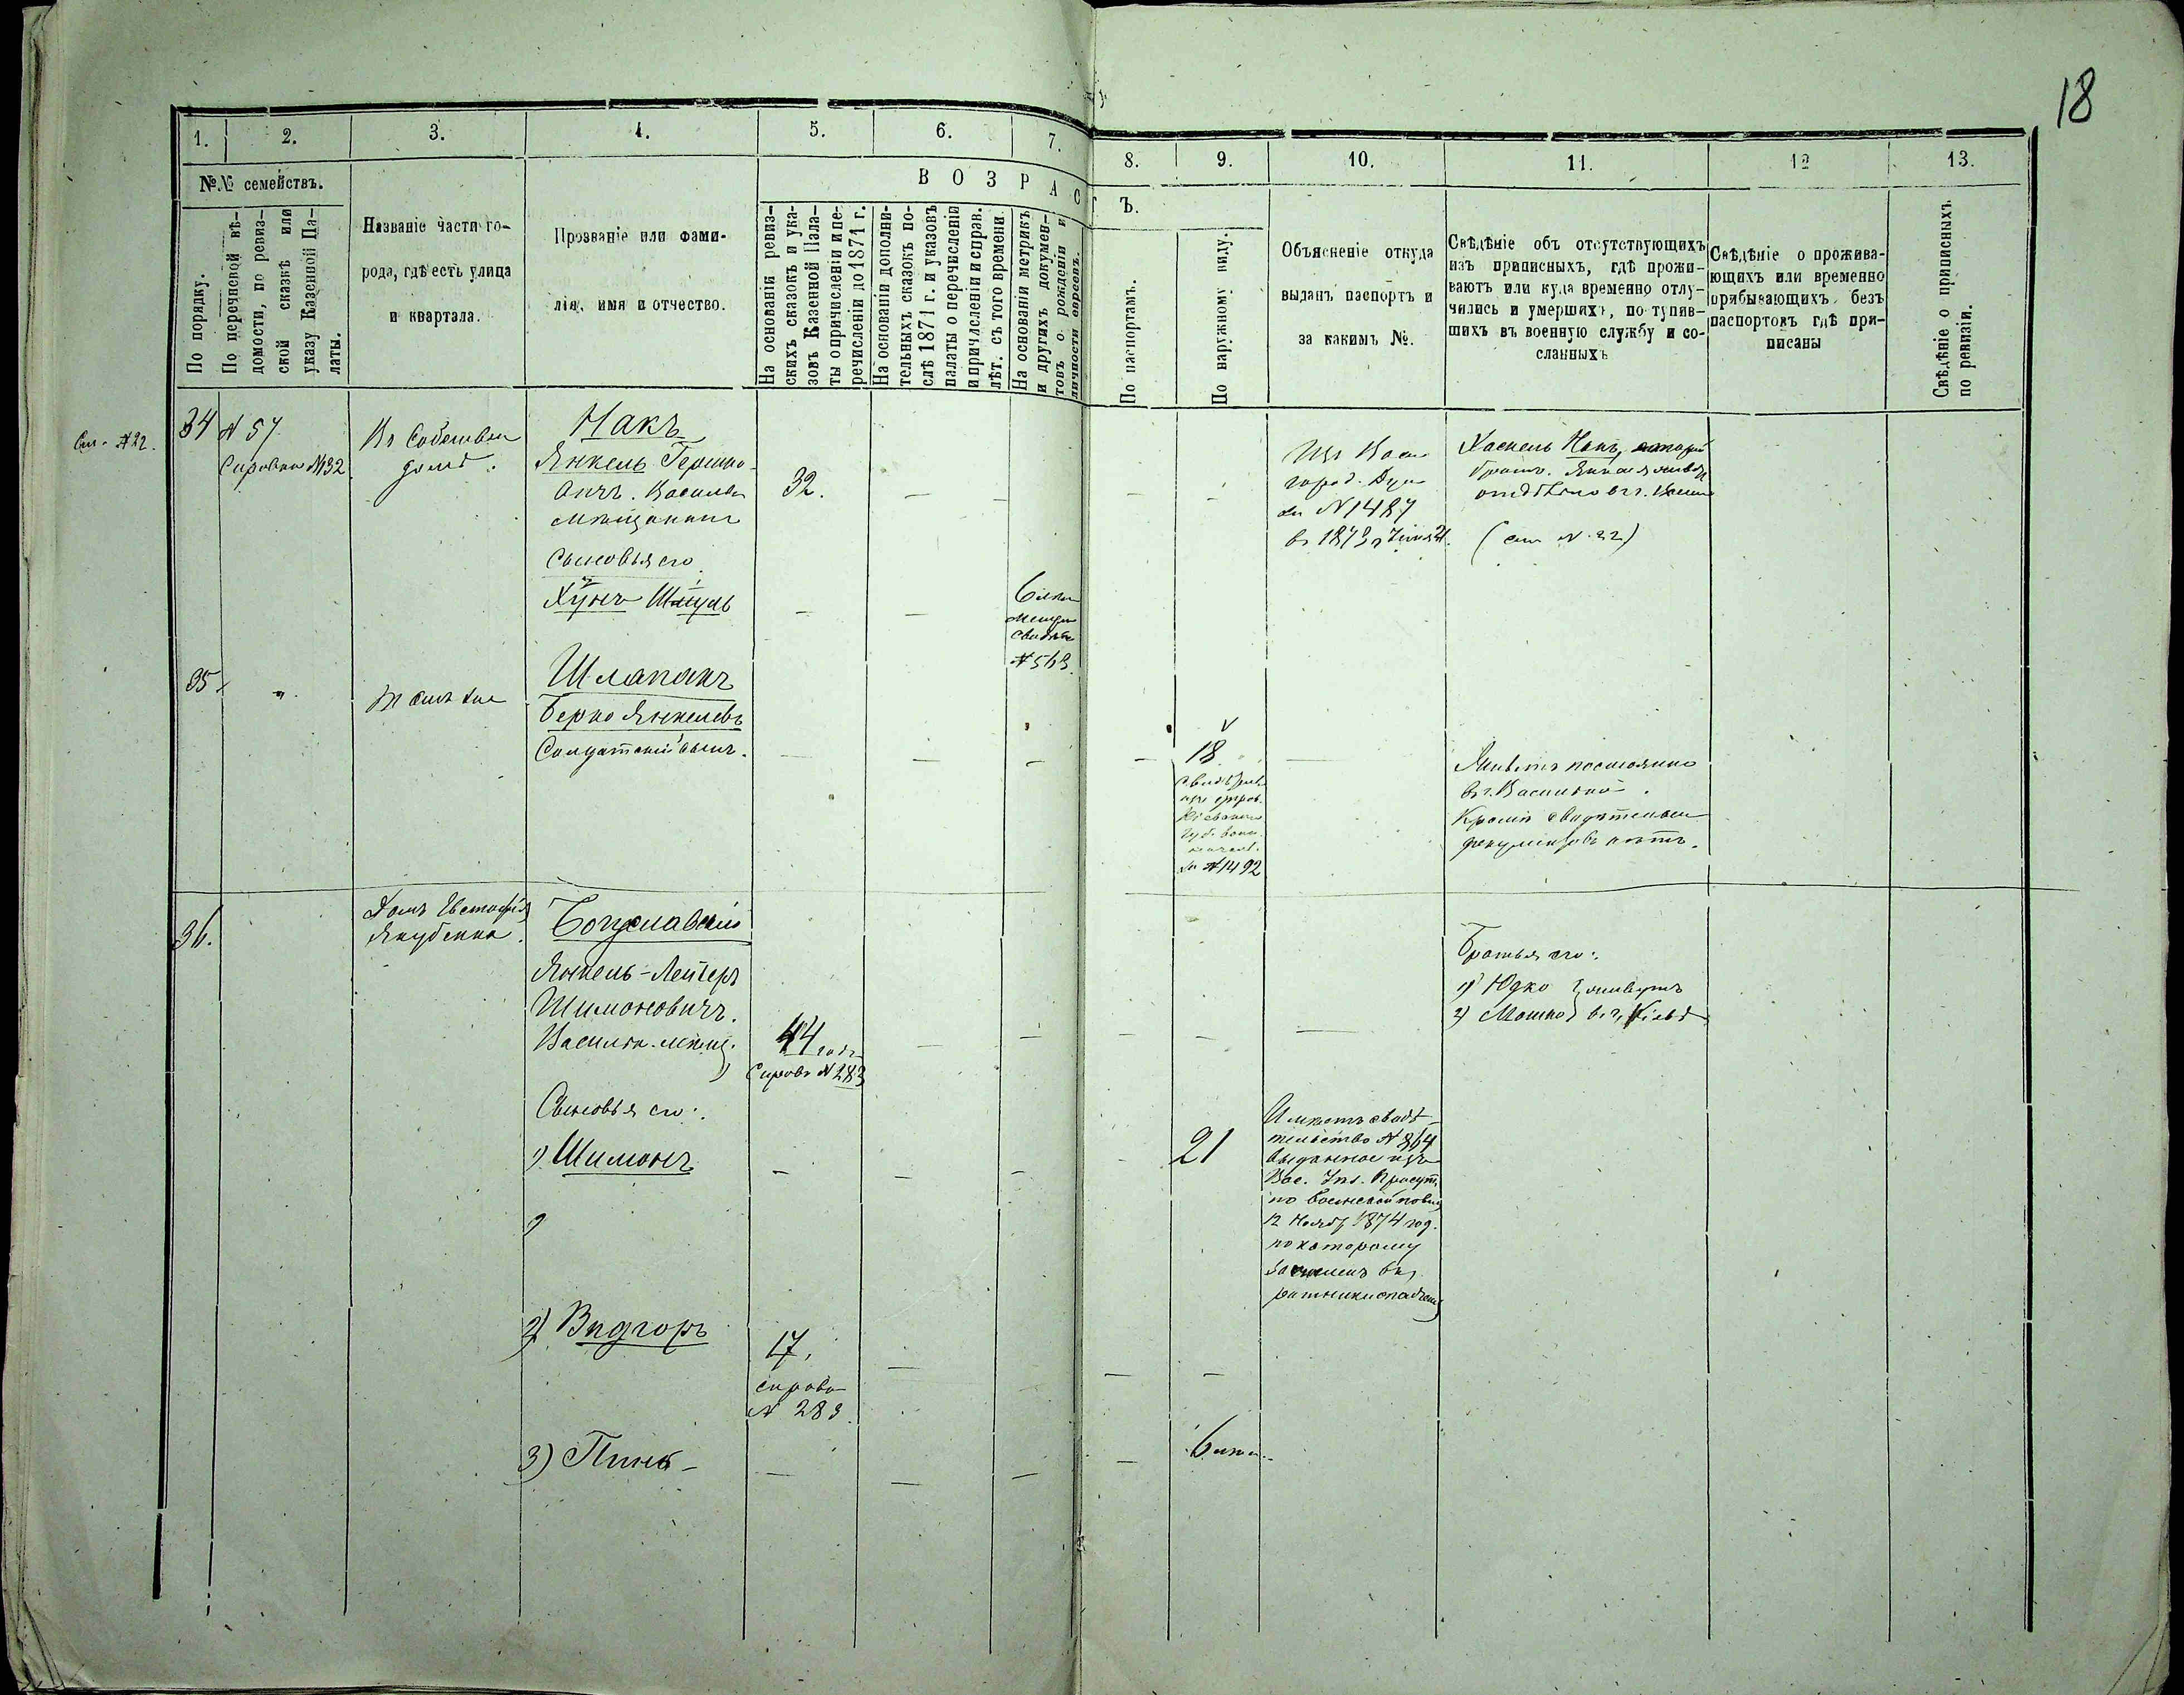 18
1. 2. 3. 4. 5. 6. 7. 8. 9. 10. 11. 12 13.
№№ семействъ.
По порядку.
По перечневой вѣ-
домости, по ревиз-
ской сказкѣ или
указу Казенной Па-
латы.
Названіе части го-
рода, гдѣ есть улица
и квартала.
Прозваніе или фами-
лія, имя и отчество.
ВОЗРАСТЪ.
На основаніи ревиз-
скихъ сказокъ и ука-
зовъ Казенной Пала-
ты о причисленіи и пе-
речисленіи до 1871 г.
На основаніи дополни-
тельныхъ сказокъ по-
слѣ 1871 г. и указовъ
палаты о перечисленіи
и причисленіи и справ.
лѣт. съ того времени.
На основаніи метрикъ
и другихъ докумен-
товъ о рожденіи и
личности евреевъ.
По паспортамъ.
По наружному виду.
Объясненіе откуда
выданъ паспортъ и
за какимъ №.
Свѣдѣніе объ отсутствующихъ
изъ приписныхъ, гдѣ прожи-
ваютъ или куда временно отлу-
чились и умершихъ, поступив-
шихъ въ военную службу и со-
сланныхъ
Свѣдѣніе о прожива-
ющихъ или временно
прибывающихъ безъ
паспортовъ гдѣ при-
писаны
Свѣдѣніе о приписныхъ
по ревизіи.
См. №22.
34
№ 57
Справка №132
Въ Собствен
домѣ.
Накъ
Янкель Гершко-
вичъ. Васильк
мѣщанинъ
32.
Сыновья его
Хунъ Шмуль
6 лѣт
метри
свидѣт
№563.
Изъ Васи
город. Дум
за №1487
въ 1873 г Іюня 21.
Хаскель Накъ, который
братъ. Янкеля живетъ
отдѣльно въ г. Васил
(см №22)
35
"
Тамъ же
Шлапакъ
Берко Янкелевъ
Солдатскій сынъ.
18
свидѣтел
Губ. воин.
началь.
за №1492
Живетъ постоянно
въ г. Васильковѣ.
Кромѣ свидѣтельства
документовъ нѣтъ.
36.
Домъ Евстафія
Якубенка.
Богуславскій
Янкель-Лейзеръ
Шимоновичъ.
Васильк. мѣщ.
44 года
Справк №283
Братья его:
1) Юдко } живутъ
2) Мошко } въ г. Кіевѣ
Сыновья его:
1) Шимонъ
21
Имѣетъ свидѣ-
тельство №864
выданное изъ
Вас. Уѣз. Присут.
по воинской повин
12 Ноября 1874 год.
по которому
зачисленъ въ
ратники ополчен
2) Видгоръ
17.
справк
№ 283
3) Пинь
6 лѣтъ